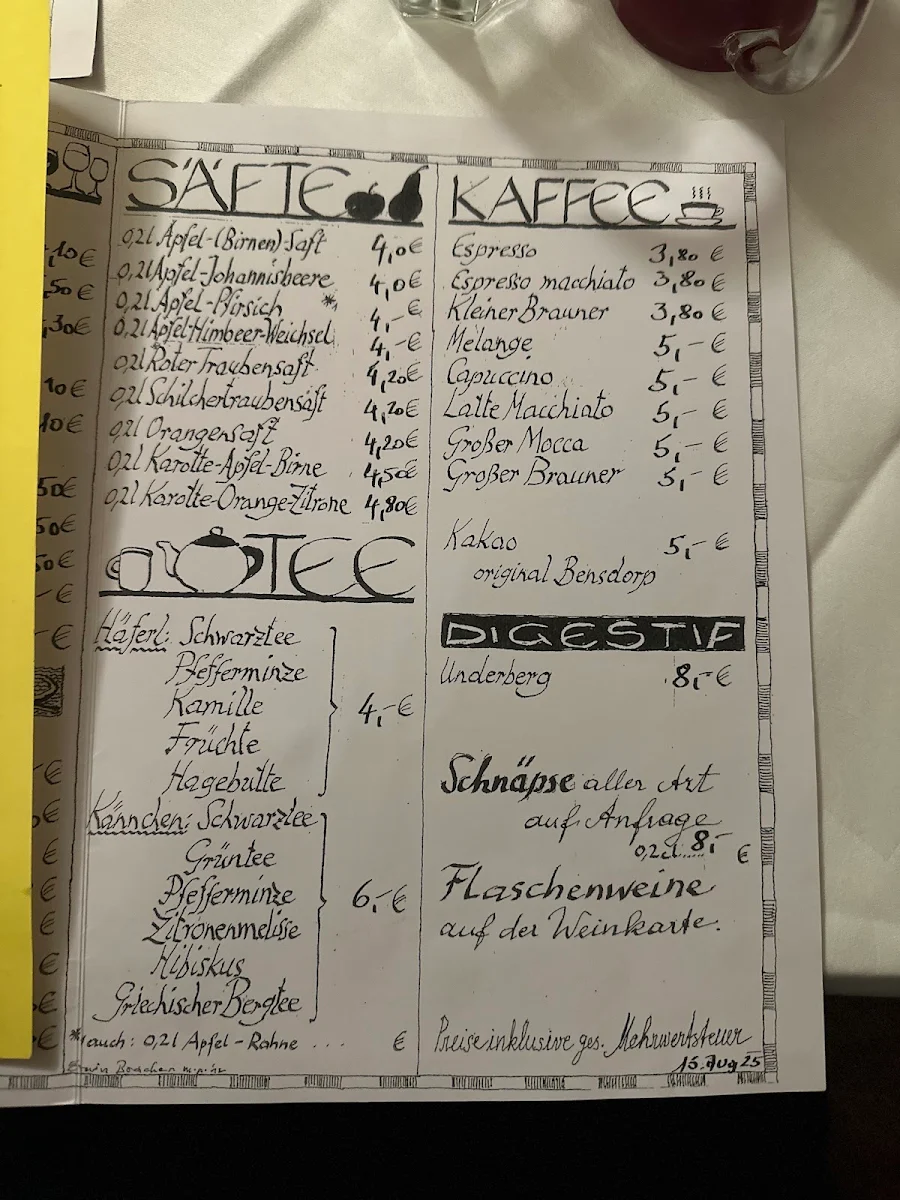 ,10€
,50€
,30€
10€
10€
50€
50€
50€
-€
-€
€
€
€
€
€
€
€
€
SÄFTE
0,2l Apfel-(Birnen)-Saft 4,0€
0,2l Apfel-Johannisbeere 4,0€
0,2l Apfel-Pfirsich * 4,-€
0,2l Apfel-Himbeer-Weichsel 4,-€
0,2l Roter Traubensaft 4,20€
0,2l Schilchertraubensaft 4,20€
0,2l Orangensaft 4,20€
0,2l Karotte-Apfel-Birne 4,50€
0,2l Karotte-Orange-Zitrone 4,80€
TEE
Häferl: Schwarztee
Pfefferminze
Kamille 4,-€
Früchte
Hagebutte
Kännchen: Schwarztee
Grüntee
Pfefferminze 6,-€
Zitronenmelisse
Hibiskus
Griechischer Bergtee
* auch: 0,2l Apfel-Rahne ... €
KAFFEE
Espresso 3,80 €
Espresso macchiato 3,80€
Kleiner Brauner 3,80€
Melange 5,-€
Capuccino 5,-€
Latte Macchiato 5,-€
Großer Mocca 5,-€
Großer Brauner 5,-€
Kakao 5,-€
original Bensdorp
DIGESTIF
Underberg 8,-€
Schnäpse aller Art
auf Anfrage
0,2cl.... 8,- €
Flaschenweine
auf der Weinkarte.
Preise inklusive ges. Mehrwertsteuer
15. Aug 25